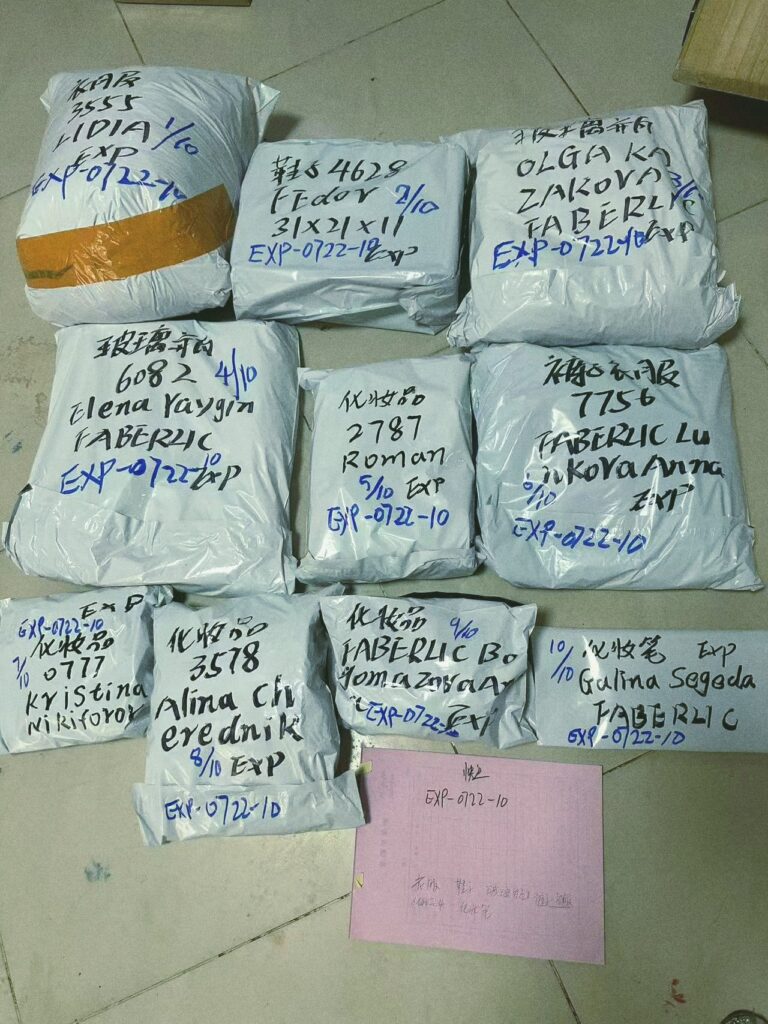 衣服
3555
LIDIA 1/10
EXP
EXP-0722-10
鞋子 4628
FEdor 2/10
31X21X11
EXP-0722-10 Exp
玻璃瓶
OLGA KA
ZAKOVA
FABERLIC
EXP-0722-10 Exp
玻璃瓶
6082 4/10
Elena Yaygin
FABERLIC
EXP-0722-10 Exp
化妆品
2787
Roman
5/10 EXP
EXP-0722-10
衣服
7756
FABERLIC Lu
nkova Anna
6/10 EXP
EXP-0722-10
EXP
EXP-0722-10
7/10 化妆品
0777
Kristina
Nikiforov
化妆品
3578
Alina Ch
erednik
8/10 EXP
EXP-0722-10
化妆品 9/10
FABERLIC Bo
gomazova An
EXP-0722- Exp
10/10 化妆笔 Exp
Galina Segeda
FABERLIC
EXP-0722-10
快递
EXP-0722-10
衣服 鞋子 玻璃瓶
化妆笔